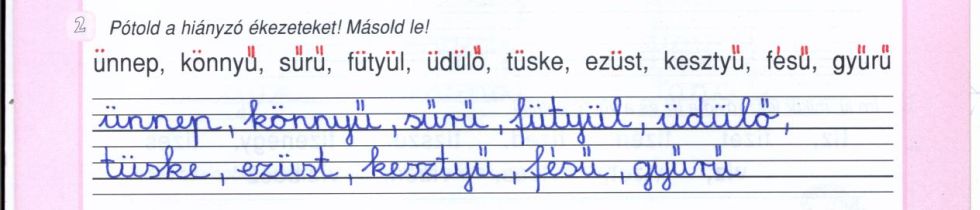 2 Pótold a hiányzó ékezeteket! Másold le!
ünnep, könnyű, sűrű, fütyül, üdülő, tüske, ezüst, kesztyű, fésű, gyűrű
ünnep, könnyű, sűrű, fütyül, üdülő,
tüske, ezüst, kesztyű, fésű, gyűrű